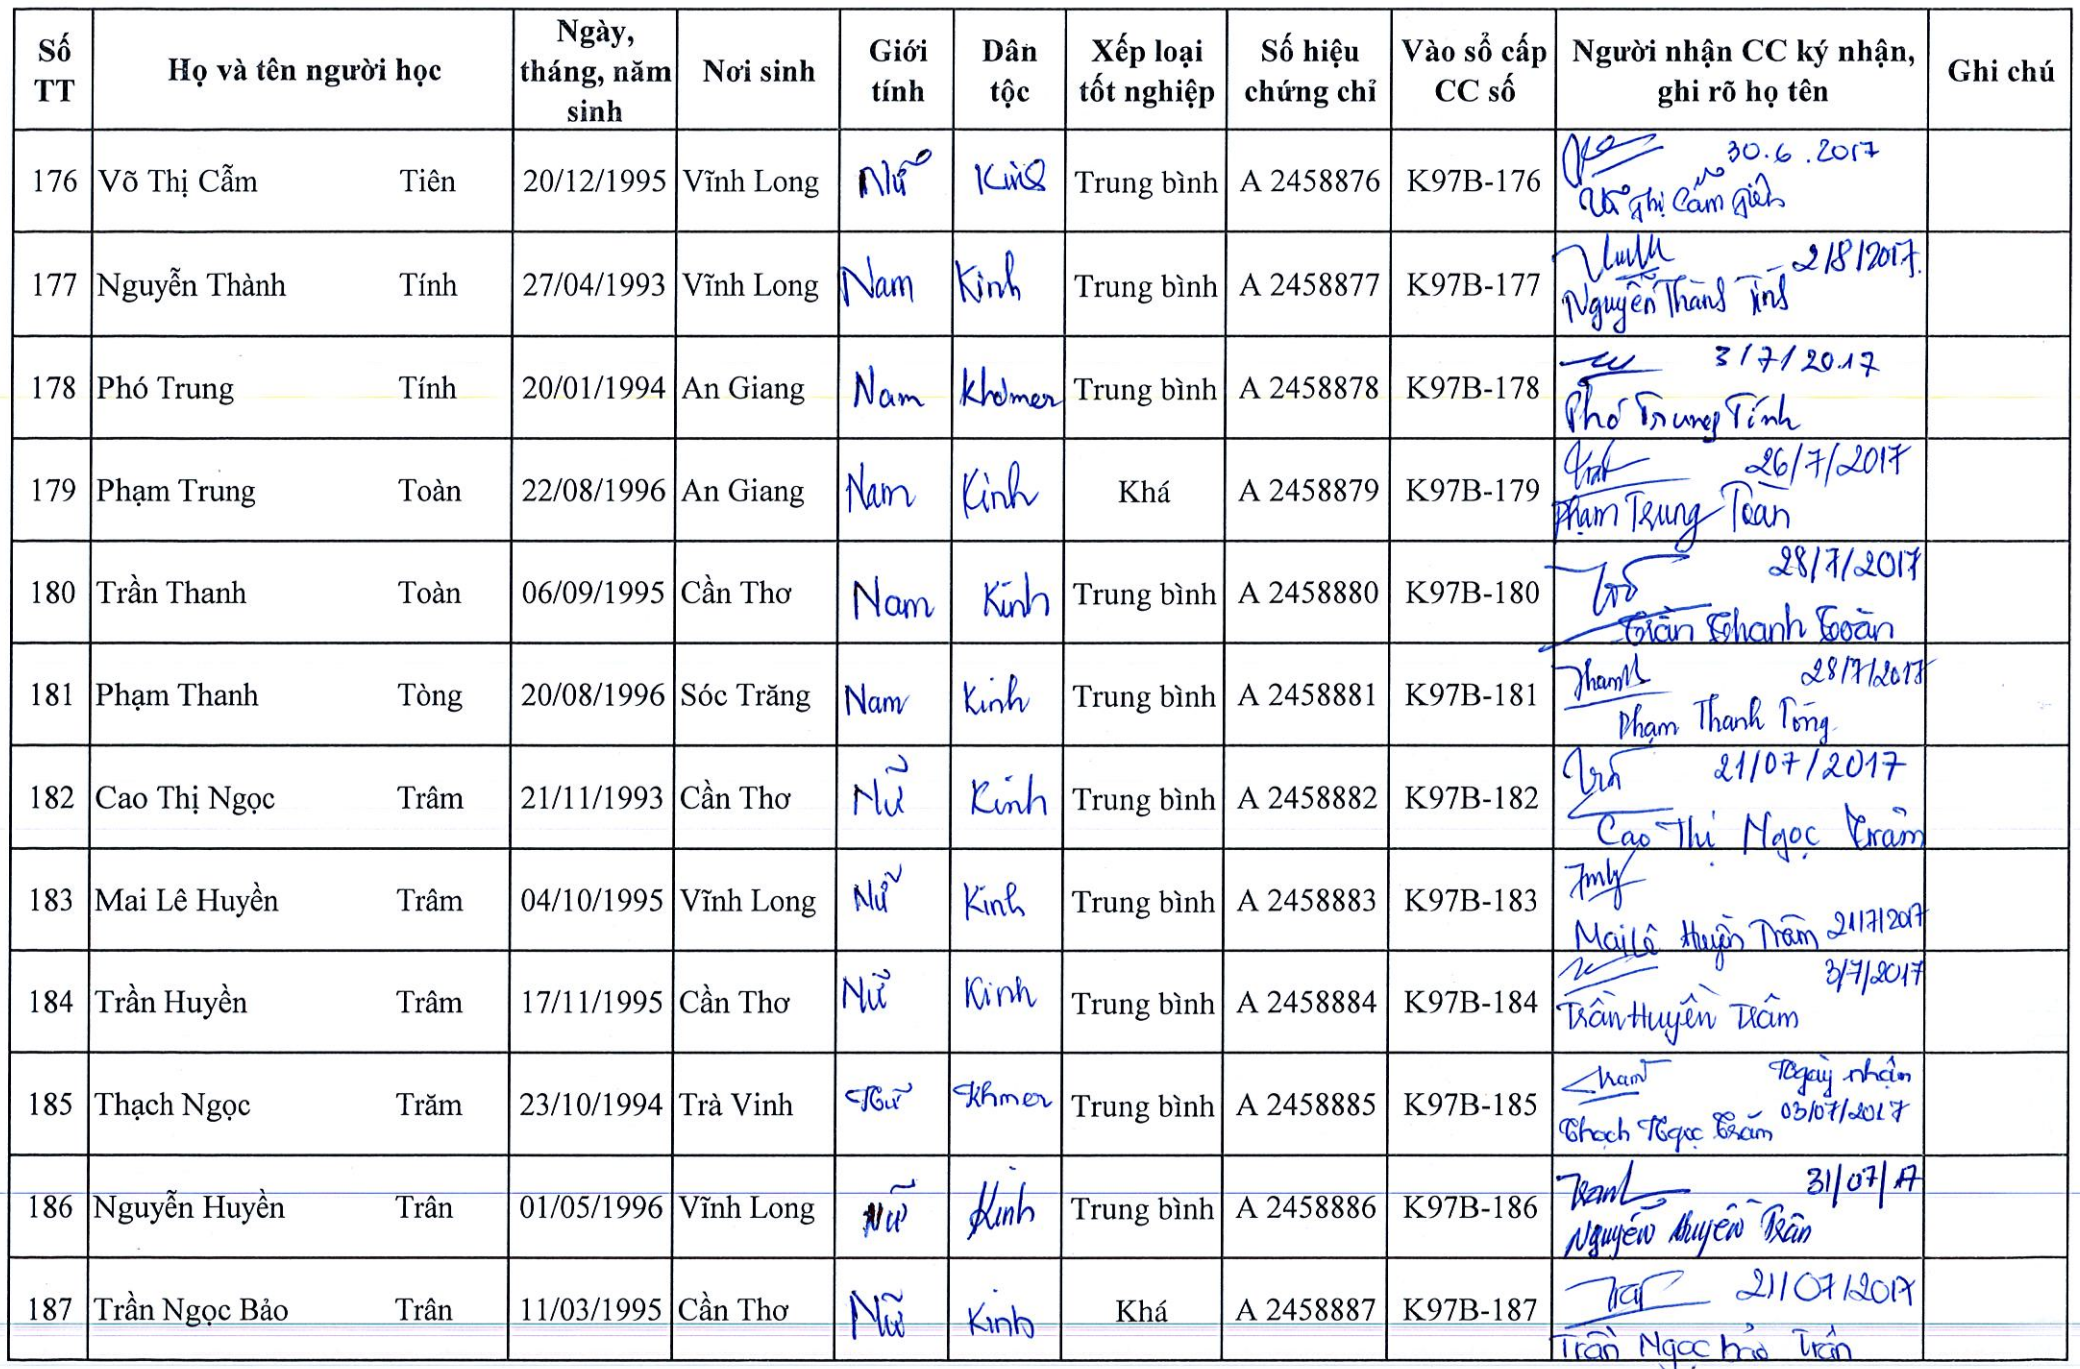 Số TT | Họ và tên người học | Ngày, tháng, năm sinh | Nơi sinh | Giới tính | Dân tộc | Xếp loại tốt nghiệp | Số hiệu chứng chỉ | Vào sổ cấp CC số | Người nhận CC ký nhận, ghi rõ họ tên | Ghi chú
176 | Võ Thị Cẩm Tiên | 20/12/1995 | Vĩnh Long | Nữ | Kinh | Trung bình | A 2458876 | K97B-176 | 30.6.2017 Võ Thị Cẩm Tiên
177 | Nguyễn Thành Tính | 27/04/1993 | Vĩnh Long | Nam | Kinh | Trung bình | A 2458877 | K97B-177 | 2/8/2017. Nguyễn Thành Tính
178 | Phó Trung Tính | 20/01/1994 | An Giang | Nam | Khơmer | Trung bình | A 2458878 | K97B-178 | 3/7/2017 Phó Trung Tính
179 | Phạm Trung Toàn | 22/08/1996 | An Giang | Nam | Kinh | Khá | A 2458879 | K97B-179 | 26/7/2017 Phạm Trung Toàn
180 | Trần Thanh Toàn | 06/09/1995 | Cần Thơ | Nam | Kinh | Trung bình | A 2458880 | K97B-180 | 28/7/2017 Trần Thanh Toàn
181 | Phạm Thanh Tòng | 20/08/1996 | Sóc Trăng | Nam | Kinh | Trung bình | A 2458881 | K97B-181 | Thanh 28/7/2017 Phạm Thanh Tòng
182 | Cao Thị Ngọc Trâm | 21/11/1993 | Cần Thơ | Nữ | Kinh | Trung bình | A 2458882 | K97B-182 | 21/07/2017 Cao Thị Ngọc Trâm
183 | Mai Lê Huyền Trâm | 04/10/1995 | Vĩnh Long | Nữ | Kinh | Trung bình | A 2458883 | K97B-183 | Mai Lê Huyền Trâm 21/7/2017
184 | Trần Huyền Trâm | 17/11/1995 | Cần Thơ | Nữ | Kinh | Trung bình | A 2458884 | K97B-184 | 3/7/2017 Trần Huyền Trâm
185 | Thạch Ngọc Trăm | 23/10/1994 | Trà Vinh | Nữ | Khmer | Trung bình | A 2458885 | K97B-185 | Ngày nhận 03/07/2017 Thạch Ngọc Trăm
186 | Nguyễn Huyền Trân | 01/05/1996 | Vĩnh Long | Nữ | Kinh | Trung bình | A 2458886 | K97B-186 | 31/07/17 Nguyễn Huyền Trân
187 | Trần Ngọc Bảo Trân | 11/03/1995 | Cần Thơ | Nữ | Kinh | Khá | A 2458887 | K97B-187 | 21/07/2017 Trần Ngọc bảo Trân